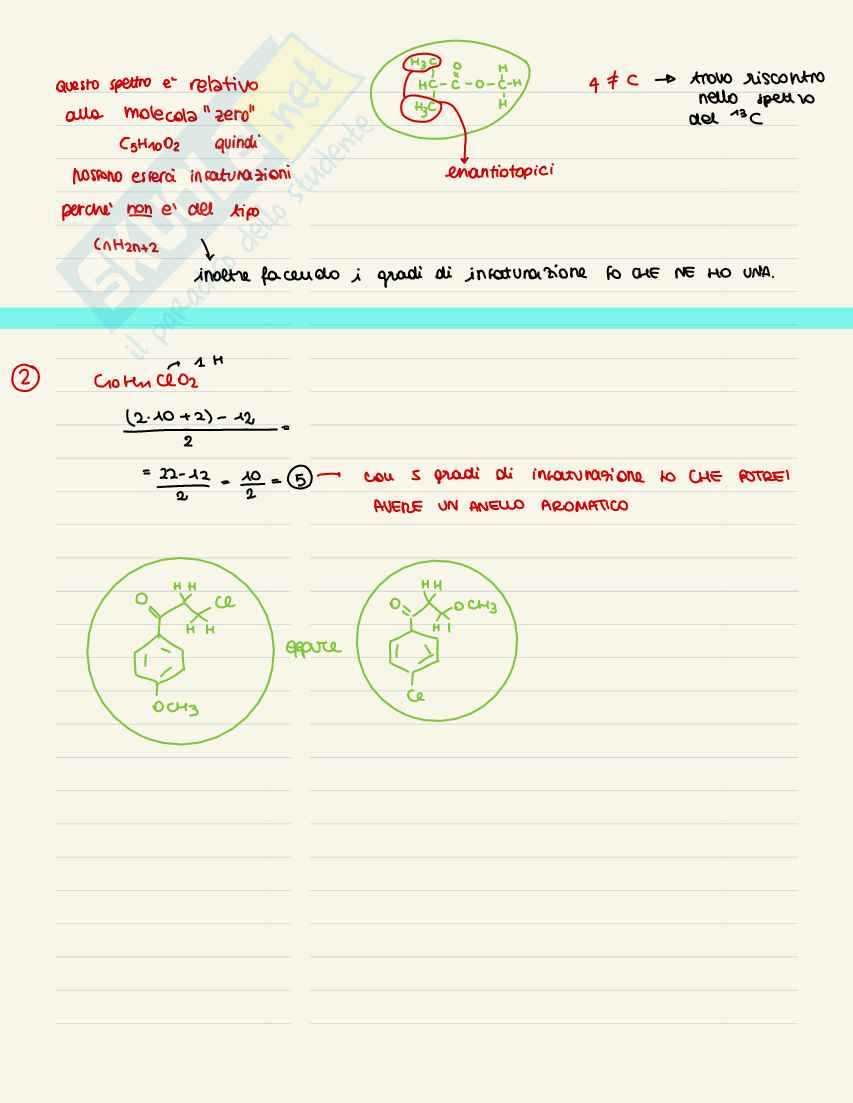 questo spettro e' relativo
alla molecola "zero"
C5H10O2 quindi
possono esserci insaturazioni
perche' non e' del tipo
CnH2n+2
H3C O H
HC-C-O-C-H
H3C H
enantiotopici
4 ≠ C → trovo riscontro
nello spettro
del 13C
inoltre facendo i gradi di insaturazione so CHE NE HO UNA.
SKUOLA.net
il paradiso dello studente
2
C10H11ClO2 → 1 H
(2·10+2)-12 / 2 =
= 22-12 / 2 = 10 / 2 = 5 — con 5 gradi di insaturazione so CHE POTREI
AVERE UN ANELLO AROMATICO
H H
O Cl
H H
OCH3
oppure
H H
O OCH3
H
Cl